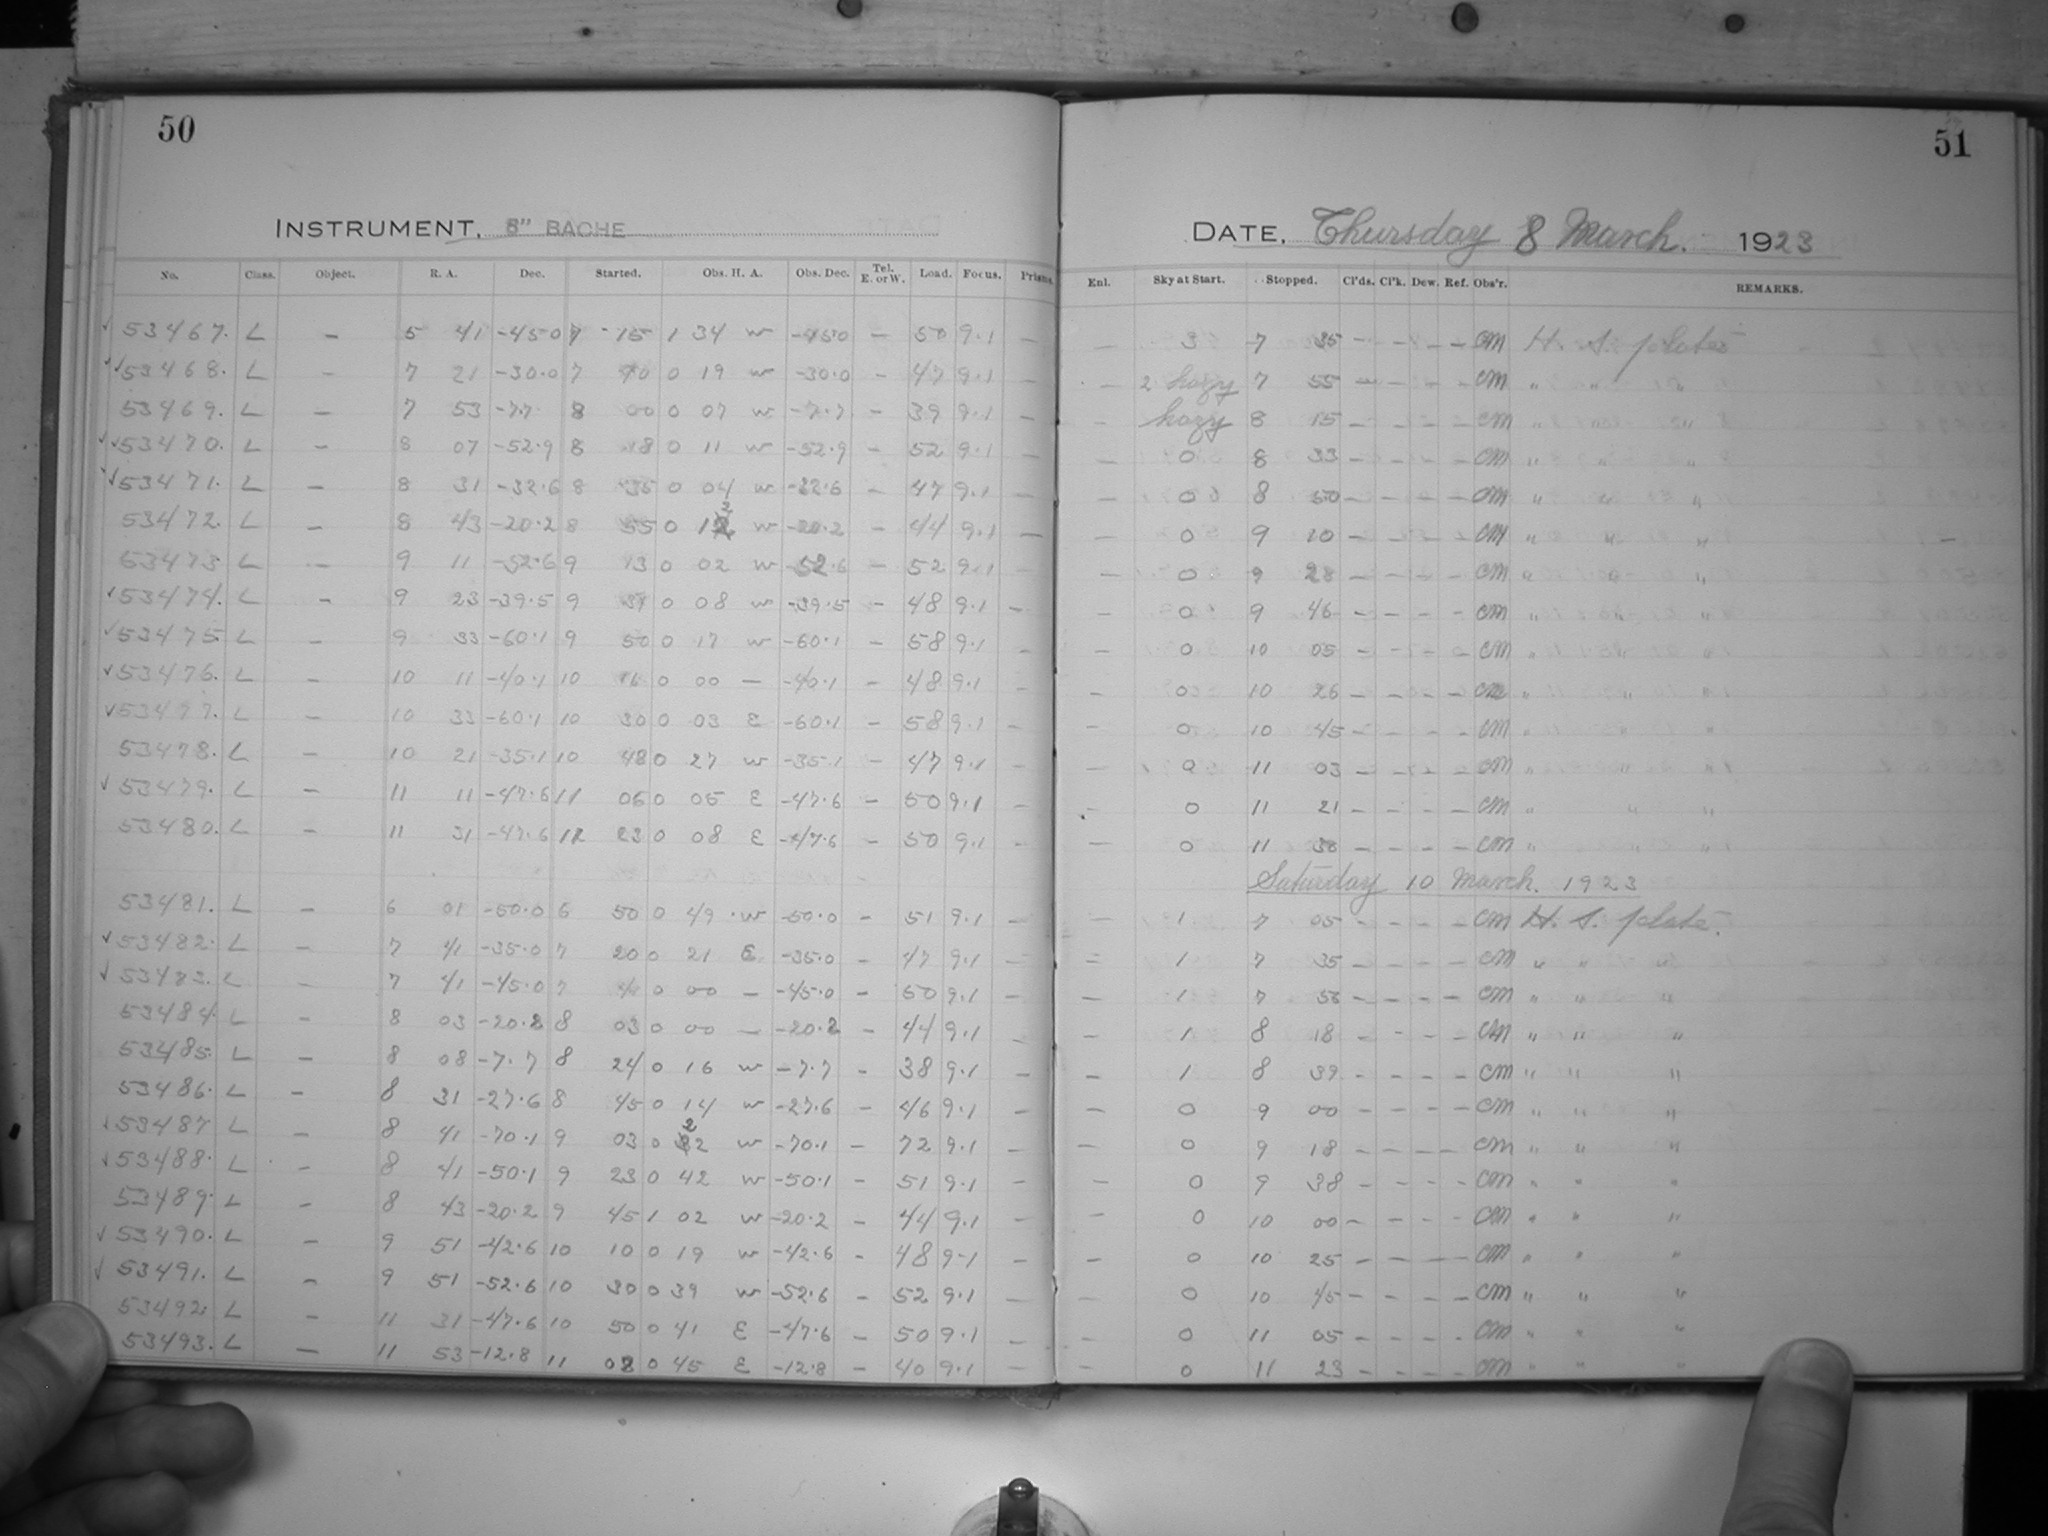 50
51
INSTRUMENT, 8" BACHE
DATE, Thursday 8 March. 1923
No. Class. Object. R. A. Dec. Started. Obs. H. A. Obs. Dec. Tel. E. or W. Load. Focus. Prisms. Enl. Sky at Start. Stopped. Cl'ds. Cl'k. Dew. Ref. Obs'r. REMARKS.
✓ 53467. L — 5 41 -45.0 7 15 1 34 w -45.0 — 50 9.1 — — 3 7 35 — — — — CM H. S. plates
✓✓ 53468. L — 7 21 -30.0 7 40 0 19 w -30.0 — 47 9.1 — — 2 hazy 7 55 — — — — CM " " "
53469. L — 7 53 -7.7 8 00 0 07 w -7.7 — 39 9.1 — — hazy 8 15 — — — — CM " " "
✓✓ 53470. L — 8 07 -52.9 8 18 0 11 w -52.9 — 52 9.1 — — 0 8 33 — — — — CM " " "
✓✓ 53471. L — 8 31 -32.6 8 35 0 04 w -32.6 — 47 9.1 — — 0 8 50 — — — — CM " " "
53472. L — 8 43 -20.2 8 55 0 12 w -20.2 — 44 9.1 — — 0 9 10 — — — — CM " " "
53473. L — 9 11 -52.6 9 13 0 02 w -52.6 — 52 9.1 — — 0 9 28 — — — — CM " " "
✓ 53474. L — 9 23 -39.5 9 31 0 08 w -39.5 — 48 9.1 — — 0 9 46 — — — — CM " " "
✓ 53475. L — 9 33 -60.1 9 50 0 17 w -60.1 — 58 9.1 — — 0 10 05 — — — — CM " " "
✓ 53476. L — 10 11 -40.1 10 11 0 00 — -40.1 — 48 9.1 — — 0 10 26 — — — — CM " " "
✓ 53477. L — 10 33 -60.1 10 30 0 03 E -60.1 — 58 9.1 — — 0 10 45 — — — — CM " " "
53478. L — 10 21 -35.1 10 48 0 27 w -35.1 — 47 9.1 — — 0 11 03 — — — — CM " " "
✓ 53479. L — 11 11 -47.6 11 06 0 05 E -47.6 — 50 9.1 — — 0 11 21 — — — — CM " " "
53480. L — 11 31 -47.6 11 23 0 08 E -47.6 — 50 9.1 — — 0 11 38 — — — — CM " " "
Saturday 10 March. 1923
53481. L — 6 01 -50.0 6 50 0 49 w -50.0 — 51 9.1 — — 1 7 05 — — — — CM H. S. plate.
✓ 53482. L — 7 41 -35.0 7 20 0 21 E -35.0 — 47 9.1 — — 1 7 35 — — — — CM " " "
✓ 53483. L — 7 41 -45.0 7 41 0 00 — -45.0 — 50 9.1 — — 1 7 56 — — — — CM " " "
53484. L — 8 03 -20.2 8 03 0 00 — -20.2 — 44 9.1 — — 1 8 18 — — — — CM " " "
53485. L — 8 08 -7.7 8 24 0 16 w -7.7 — 38 9.1 — — 1 8 39 — — — — CM " " "
53486. L — 8 31 -27.6 8 45 0 14 w -27.6 — 46 9.1 — — 0 9 00 — — — — CM " " "
✓ 53487 L — 8 41 -70.1 9 03 0 22 w -70.1 — 72 9.1 — — 0 9 18 — — — — CM " " "
✓ 53488. L — 8 41 -50.1 9 23 0 42 w -50.1 — 51 9.1 — — 0 9 38 — — — — CM " " "
53489. L — 8 43 -20.2 9 45 1 02 w -20.2 — 44 9.1 — — 0 10 00 — — — — CM " " "
✓ 53490. L — 9 51 -42.6 10 10 0 19 w -42.6 — 48 9.1 — — 0 10 25 — — — — CM " " "
✓ 53491. L — 9 51 -52.6 10 30 0 39 w -52.6 — 52 9.1 — — 0 10 45 — — — — CM " " "
53492. L — 11 31 -47.6 10 50 0 41 E -47.6 — 50 9.1 — — 0 11 05 — — — — CM " " "
53493. L — 11 53 -12.8 11 08 0 45 E -12.8 — 40 9.1 — — 0 11 23 — — — — CM " " "